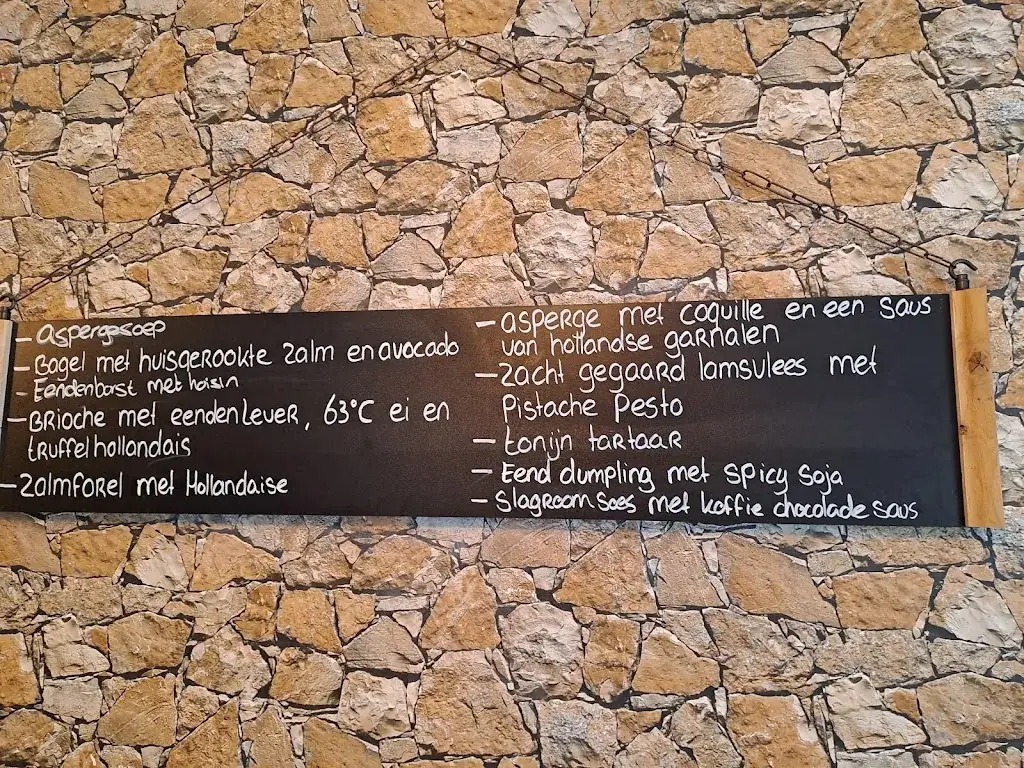 - Aspergesoep
- Bagel met huisgerookte zalm en avocado
- Eendenborst met hoisin
- Brioche met eendenlever, 63°C ei en
truffel hollandais
- Zalmforel met Hollandaise
- asperge met coquille en een saus
van hollandse garnalen
- Zacht gegaard lamsvlees met
Pistache Pesto
- tonijn tartaar
- Eend dumpling met spicy soja
- Slagroom soes met koffie chocolade saus